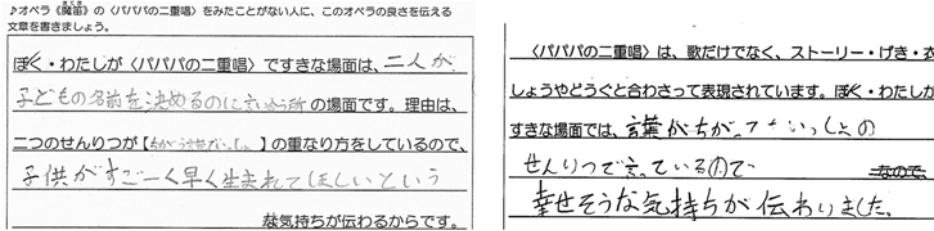 ♪オペラ《魔笛》の〈パパパの二重唱〉をみたことがない人に、このオペラの良さを伝える
文章を書きましょう。
ぼく・わたしが〈パパパの二重唱〉ですきな場面は、二人が、
子どもの名前を決めるのに言い合う所の場面です。理由は、
二つのせんりつが【】の重なり方をしているので、
子供がすごーく早く生まれてほしいという
な気持ちが伝わるからです。
〈パパパの二重唱〉は、歌だけでなく、ストーリー・げき・衣
しょうやどうぐと合わさって表現されています。ぼく・わたしが
すきな場面では、言葉がちがってもいっしょの
せんりつで言っているので なので、
幸せそうな気持ちが伝わりました。